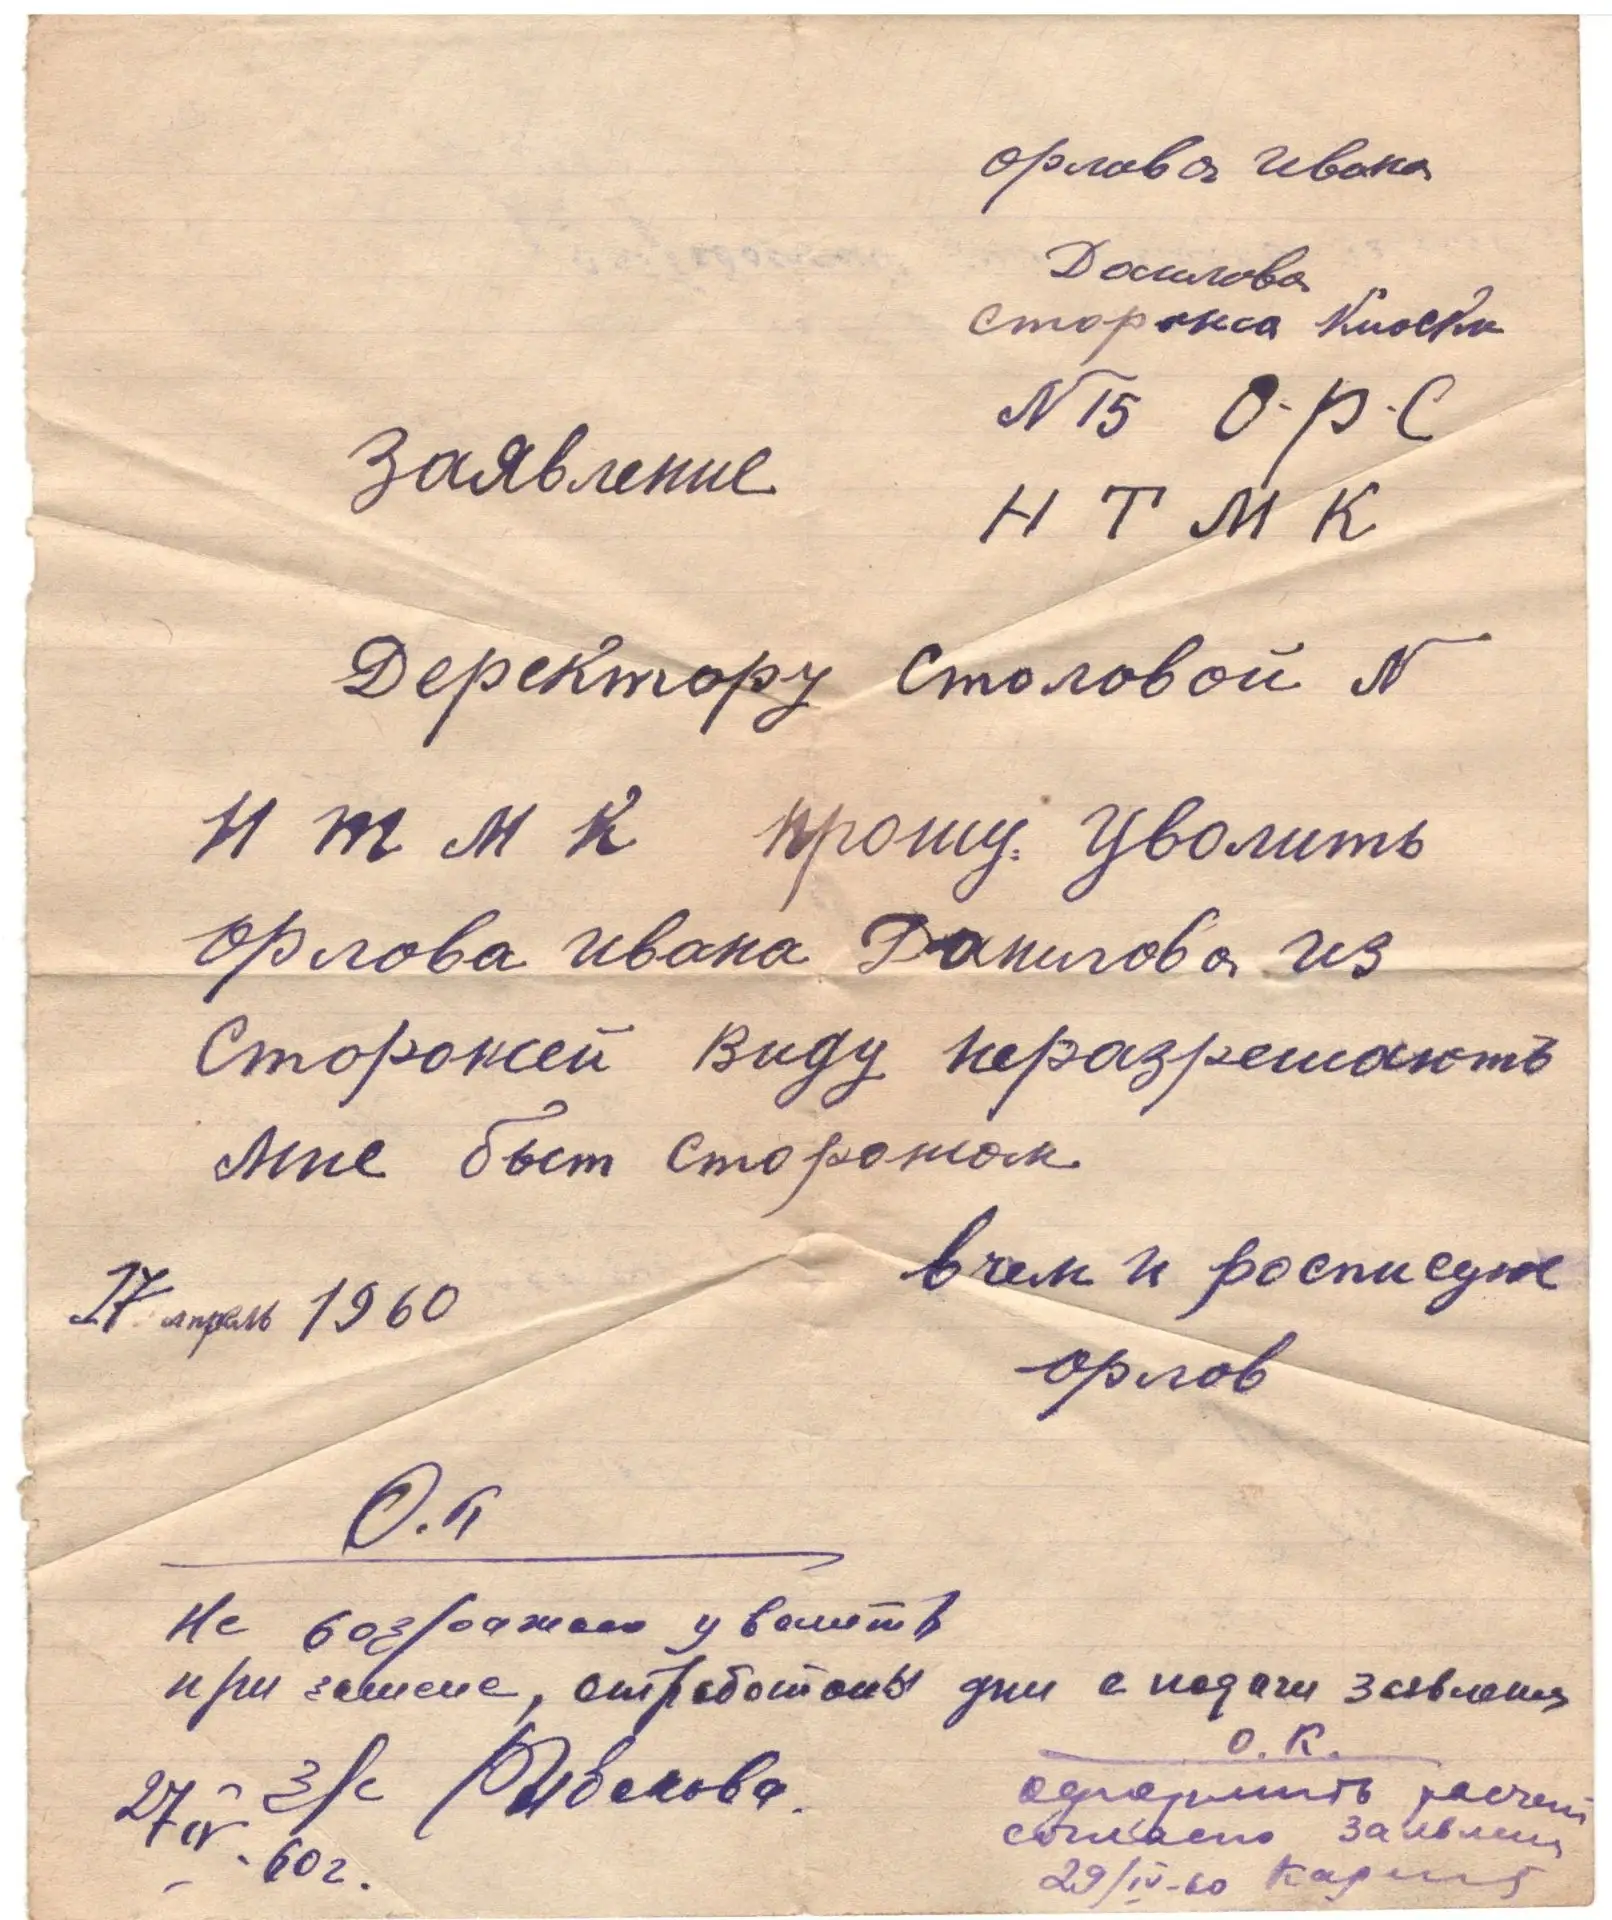 орлова ивана
Данилова
сторожа Киоска
N 15 О-Р-С
Заявление
Н Т М К
Деректору Столовой N
Н Т М К прошу. Уволить
орлова ивана Данилова из
Сторожей Виду неразрешають
мне быт Сторожом
в чем и росписуюс
орлов
17 апрель 1960
О.К
Не возражаю уволить
при замене, отработаны дни с подачи заявления
з/с
27 IV - 60 г.
О.К.
оформить расчет
согласно заявлен
29/IV-60